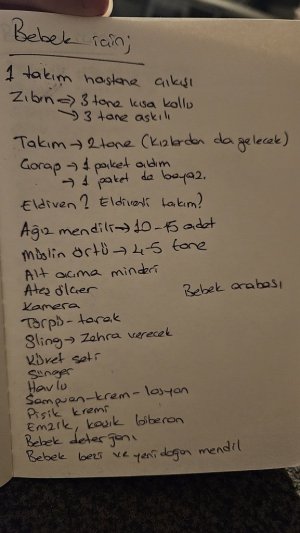 Bebek için;
1 takım hastane çıkışı
Zıbın → 3 tane kısa kollu
→ 3 tane askılı
Takım → 2 tane (kızlardan da gelecek)
Çorap → 1 paket aldım
→ 1 paket de beyaz.
Eldiven? Eldivenli takım?
Ağız mendili → 10-15 adet
Müslin örtü → 4-5 tane
Alt açma minderi
Ateş ölçer
Bebek arabası
Kamera
Törpü - tarak
Sling → Zehra verecek
Küvet seti
Sünger
Havlu
Şampuan - krem - losyon
Pişik kremi
Emzik, kaşık biberon
Bebek deterjanı
Bebek bezi ve yeni doğan mendil